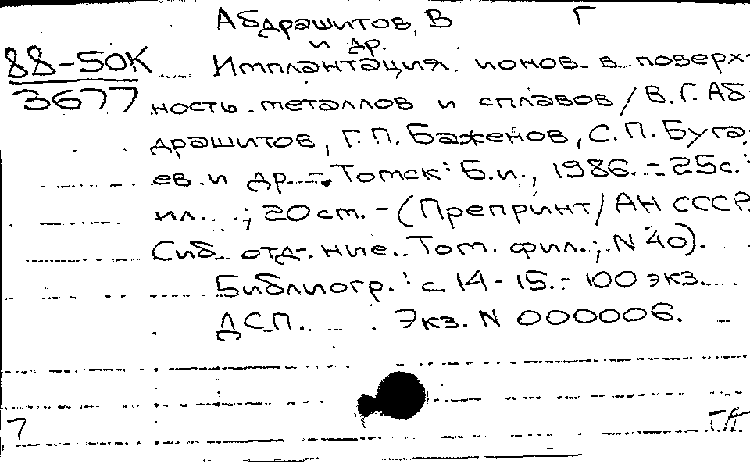 Абдрашитов, В Г
и др.
88-50К Имплантация ионов в поверх-
3677 ность металлов и сплавов / В.Г. Аб-
драшитов, Г.П. Баженов, С.П. Буга,
ев и др. - Томск: Б.и., 1986. - 25 с.:
ил. ; 20 см. - (Препринт / АН СССР.
Сиб. отд-ние. Том. фил.; N 40).
Библиогр.: с 14-15. - 100 экз.
ДСП. Экз. N 000006.
7